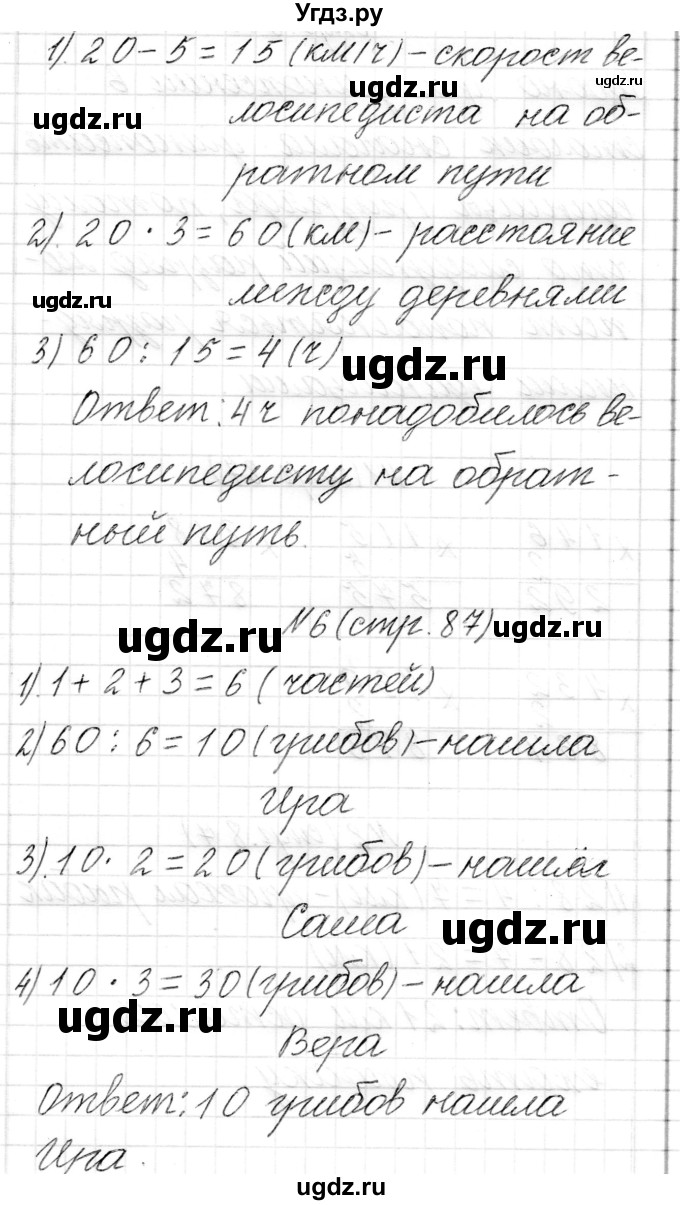 Угдз.ру
1). 20 - 5 = 15 (км/ч) - скорост ве-
ugdz.ru
ugdz.ru
ugdz.ru
лосипедиста на об-
ратном пути
2). 20 · 3 = 60 (км) - расстояние
ugdz.ru
между деревнями
3) 60 : 15 = 4 (ч)
ugdz.ru
Ответ: 4ч понадобилось ве-
лосипедисту на обрат-
ный путь.
ugdz.ru
№6 (стр. 87)
ugdz.ru
1). 1 + 2 + 3 = 6 (частей)
2) 60 : 6 = 10 (грибов) - нашла
Ира
3). 10 · 2 = 20 (грибов) - нашёл
Саша
ugdz.ru
4) 10 · 3 = 30 (грибов) - нашла
ugdz.ru
Вера
Ответ: 10 грибов нашла
Ира.
ugdz.ru